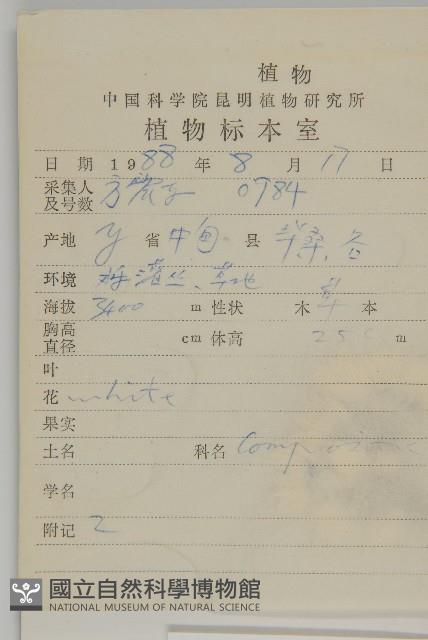 植物
中国科学院昆明植物研究所
植物标本室
日期 1988 年 8 月 17 日
采集人及号数 0784
产地 y 省 中甸 县
环境 灌丛、草地
海拔 3400 m 性状 木 草 本
胸高直径 cm 体高 25 m
叶
花 white
果实
土名 科名 Compositae
学名
附记 2
國立自然科學博物館
NATIONAL MUSEUM OF NATURAL SCIENCE